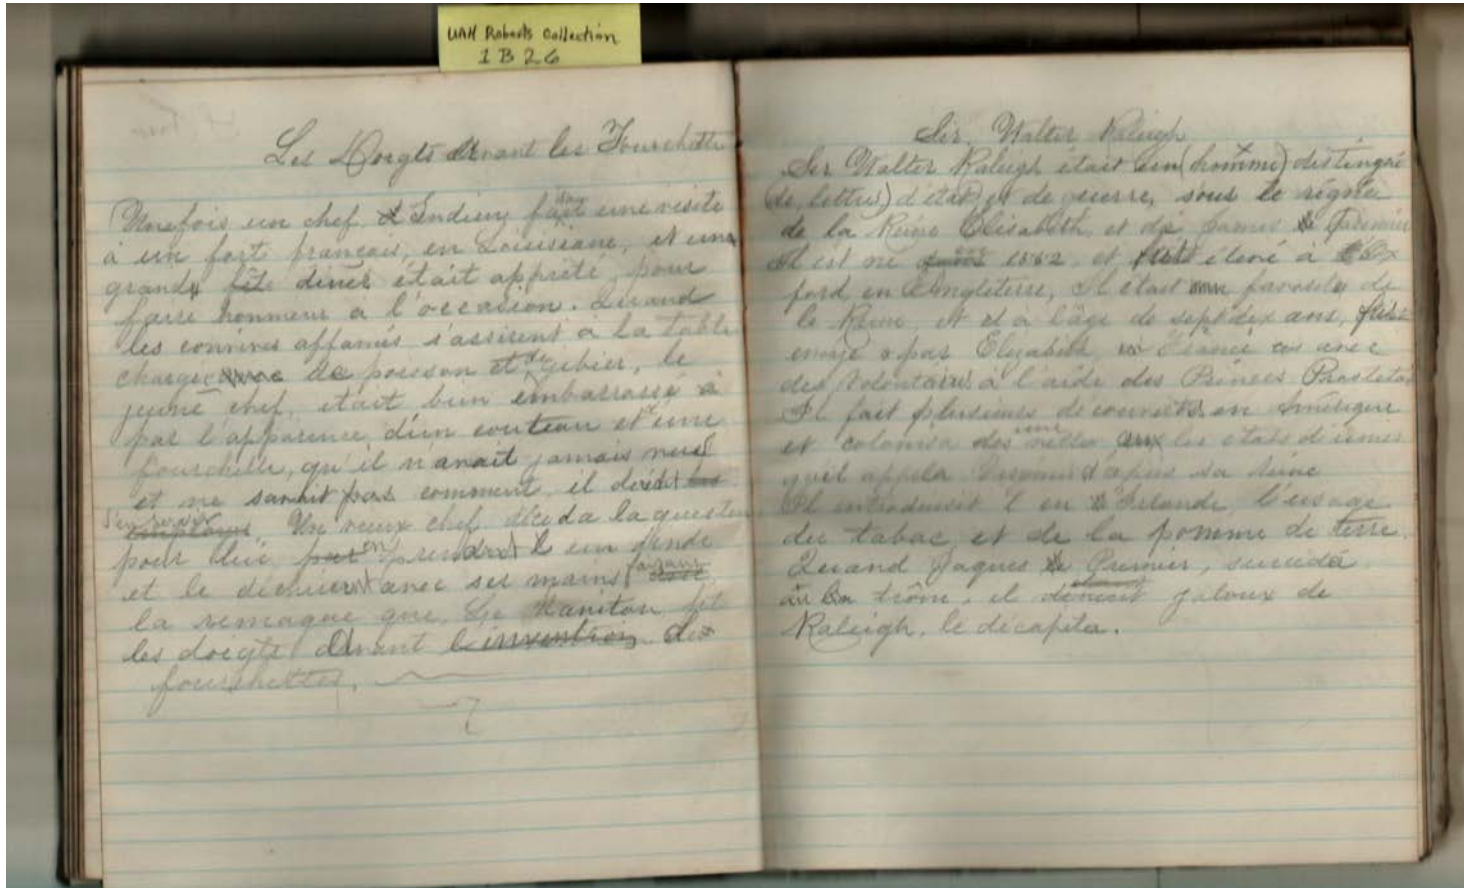 UAH Roberts Collection
1B26
Les Doigts Avant les Fourchettes
Une fois un chef Indien fait une visite
à un fort français, en Louisiane, et une
grande fête diner était apprêté, pour
faire honneur a l'occasion. Quand
les convives affamés s'assirent à la table
chargée de poisson et de gibier, le
jeune chef, était bien embarrassé
par l'apparence d'un couteau et une
fourchette, qu'il n'avait jamais
et ne savait pas comment, il
s'en servir Un vieux chef la question
pour lui en un
et le avec ses mains faisant
la remaque que, Le Manitou fit
les doigts Avant l'invention des
fourchettes.
Sir, Walter Raleigh
Sir Walter Raleigh était un (homme) distingué
(de lettres) d'état et de guerre, sous le règne
de la Reine Elisabeth, et de James Premier
Il est né en 1552, et élevé à Ox
ford, en Angleterre, Il était favorite de
la Reine, et à l'âge de sept dix ans,
par Elizabeth, France avec
des volontaires à l'aide des Princes
Il fait plusieurs découverts en Amérique
et colonisa une les états d'
qu'il appela sa
Il introduisit en Irlande, l'usage
du tabac et de la pomme de terre.
Quand Jaques Premier, succéda
au trône, il devint jaloux de
Raleigh, le décapita.